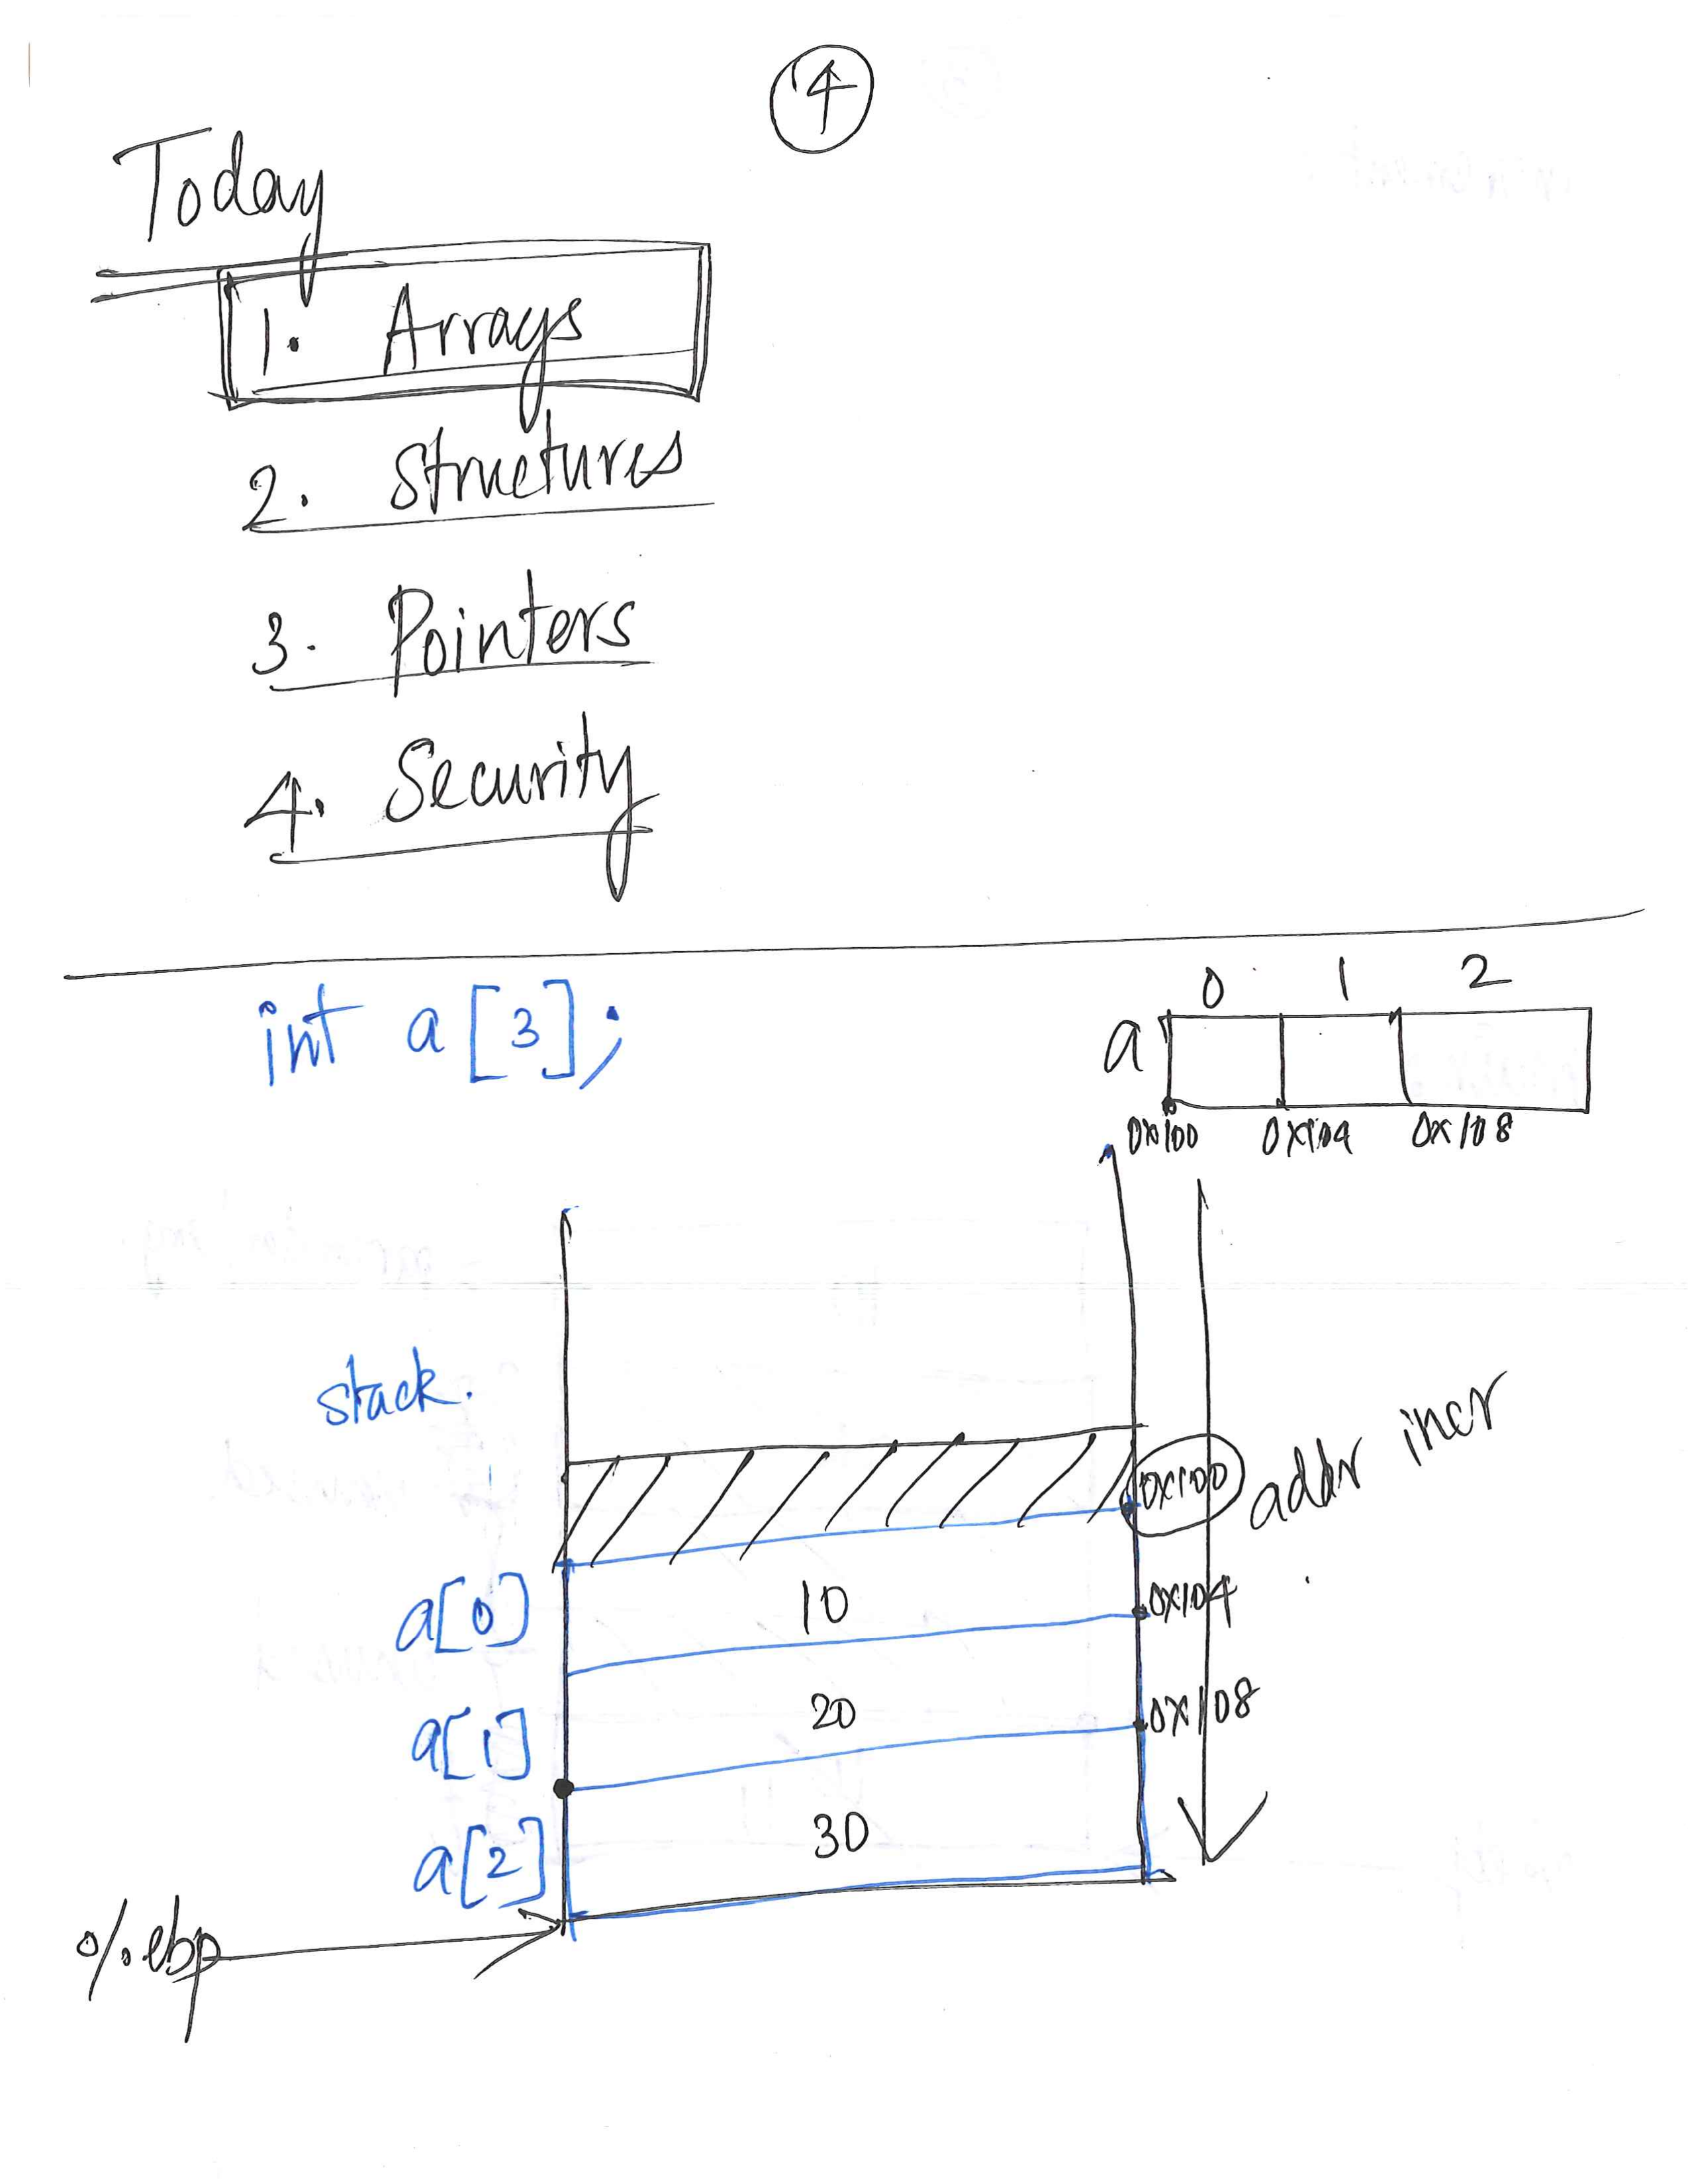 4
Today
1. Arrays
2. Structures
3. Pointers
4. Security
int a[3];
0 1 2
a
0x100 0x104 0x108
stack.
addr incr
0x100
a[0] 10 0x104
a[1] 20 0x108
a[2] 30
%ebp